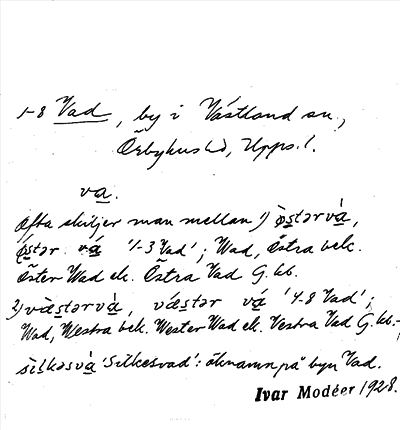 1-8 Vad, by i Västland sn,
Örbyhus hd, Upps. l.
va.
Ofta skiljer man mellan 1) ø̀stərvá,
ǿstər vá '1-3 Vad'; Wad, Östra bek.
Öster Wad ek. Östra Vad G. kb.
2) vä̀stərvà, vä́stər vá '4-8 Vad';
Wad, Westra bek. Wester Wad ek. Vestra Vad G. kb.;
sìlkəsvà 'Silkesvad': öknamn på byn Vad.
Ivar Modéer 1928.